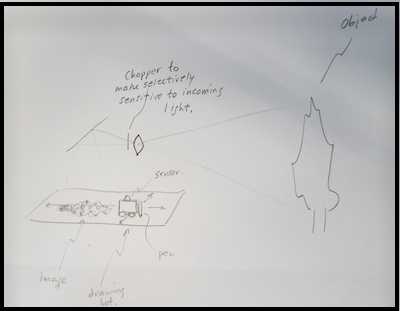 Object
Chopper to
make selectively
sensitive to incoming
light.
sensor.
pen
Image
drawing
bot.